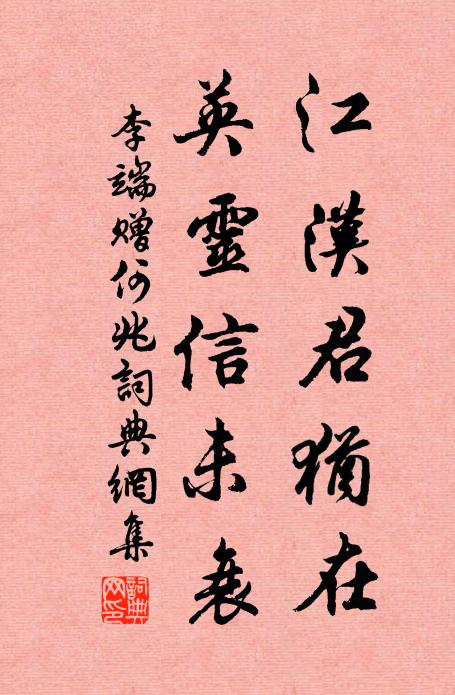 江漢君猶在
英靈信未衰
李端贈何兆詞典網集
詞典網印